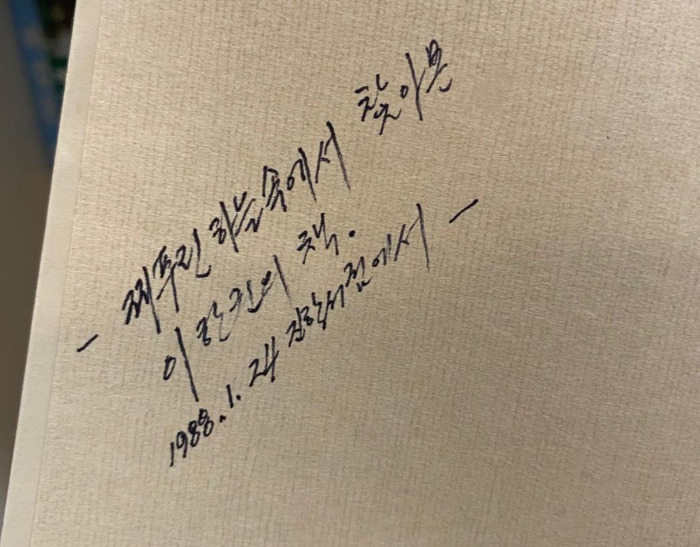 - 찌푸린 하늘속에서 찾아온
이 한권의 책.
1988.1.24 장학서점에서 -